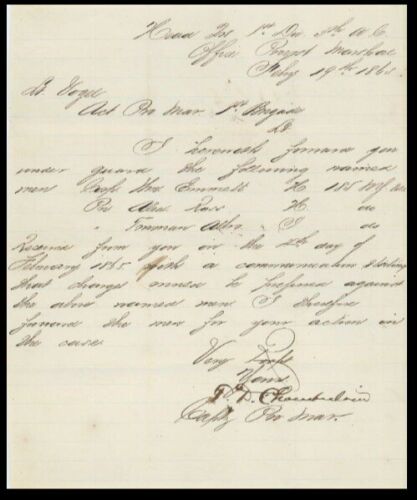 Head Qrs 1st Div 5th A. C.
Office Provost Marshal
Feby 19th 1865
Lt. Vogel
Act Pro Mar 1st Brigade
Lt
I herewith forward you
under guard the following named
men Emmett H 185
Pvt Ross H do
" do
Received from you on the day of
February 1865 with a communication stating
that charges would be prefered against
the above named men I therefore
forward the men for your action in
the case.
Very Resp
Yours
D. Chamberlain
Capt Pro Mar.